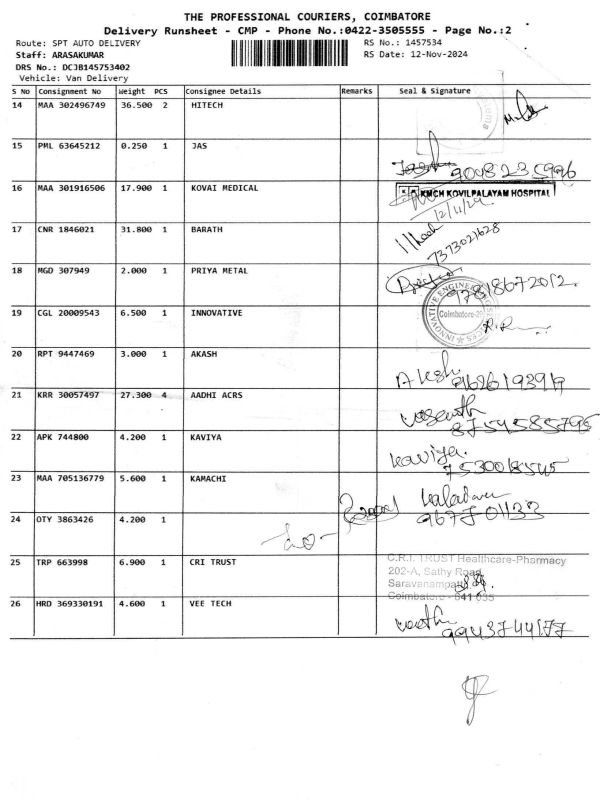 THE PROFESSIONAL COURIERS, COIMBATORE
Delivery Runsheet - CMP - Phone No.:0422-3505555 - Page No.:2
Route: SPT AUTO DELIVERY RS No.: 1457534
Staff: ARASAKUMAR RS Date: 12-Nov-2024
DRS No.: DCJB145753402
Vehicle: Van Delivery
S No Consignment No Weight PCS Consignee Details Remarks Seal & Signature
14 MAA 302496749 36.500 2 HITECH
15 PML 63645212 0.250 1 JAS
16 MAA 301916506 17.900 1 KOVAI MEDICAL KMCH KOVILPALAYAM HOSPITAL
12/11/24
17 CNR 1846021 31.800 1 BARATH
7373021628
18 MGD 307949 2.000 1 PRIYA METAL
19 CGL 20009543 6.500 1 INNOVATIVE INNOVATIVE ENGINEERING Coimbatore
20 RPT 9447469 3.000 1 AKASH
Aksh
21 KRR 30057497 27.300 4 AADHI ACRS
vasanth
8754585795
22 APK 744800 4.200 1 KAVIYA
kaviya.
23 MAA 705136779 5.600 1 KAMACHI
24 OTY 3863426 4.200 1
25 TRP 663998 6.900 1 CRI TRUST C.R.I. TRUST Healthcare-Pharmacy
202-A, Sathy Road
Saravanampatti
Coimbatore - 641 035
26 HRD 369330191 4.600 1 VEE TECH
9943744177